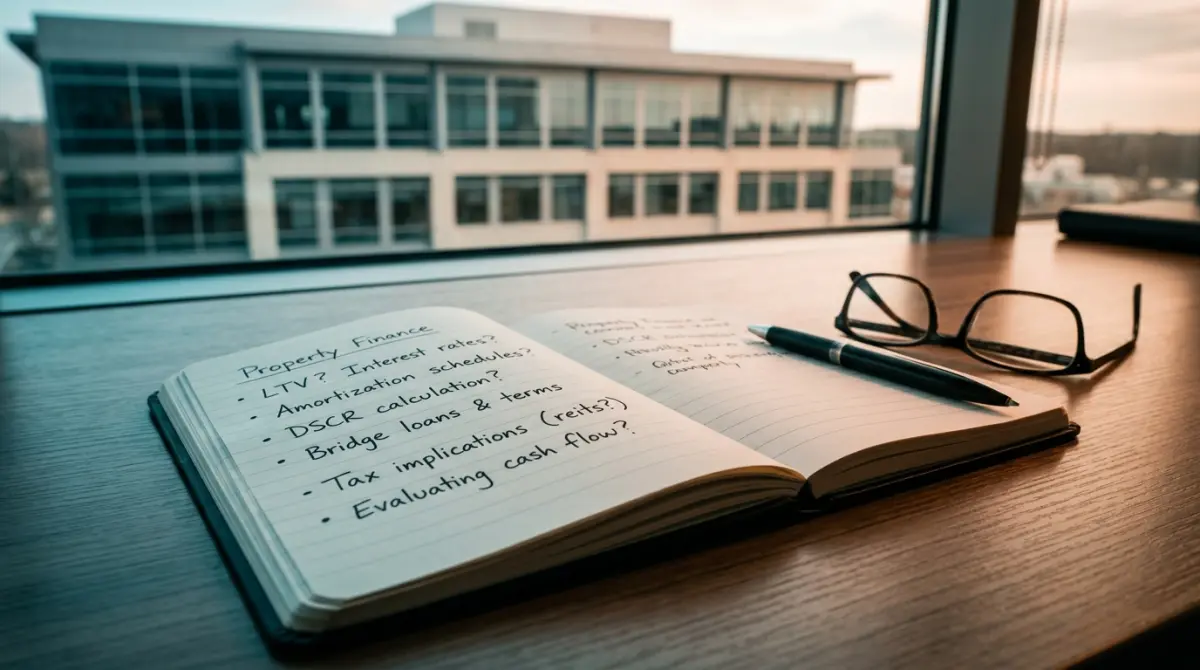 Property Finance
• LTV? Interest rates?
• Amortization schedules?
• DSCR calculation?
• Bridge loans & terms
• Tax implications (reits?)
• Evaluating cash flow?
• DSCR